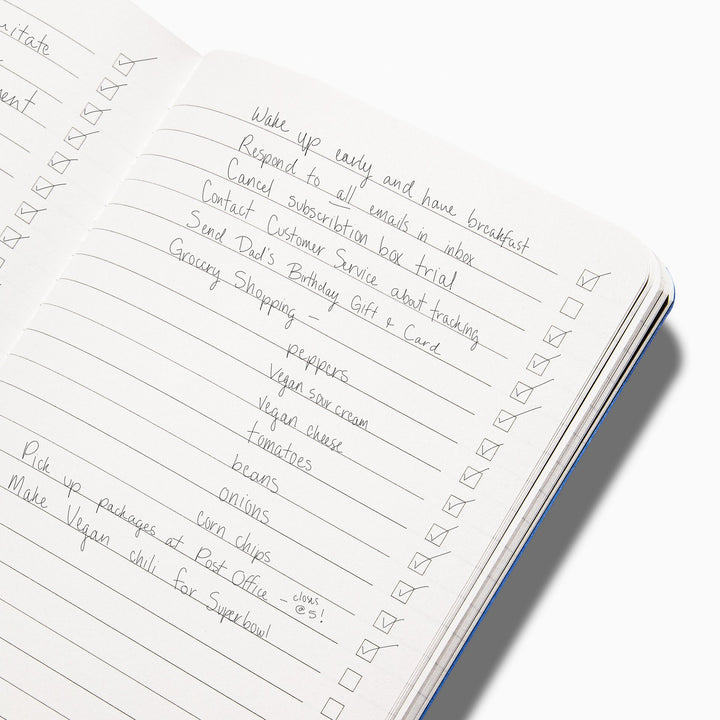 itate
ent
Wake up early and have breakfast
Respond to all emails in inbox
Cancel subscribtion box trial
Contact Customer Service about tracking
Send Dad's Birthday Gift & Card
Grocery Shopping –
peppers
Vegan sour cream
vegan cheese
tomatoes
beans
onions
corn chips
Pick up packages at Post Office – closes @5!
Make Vegan chili for Superbowl